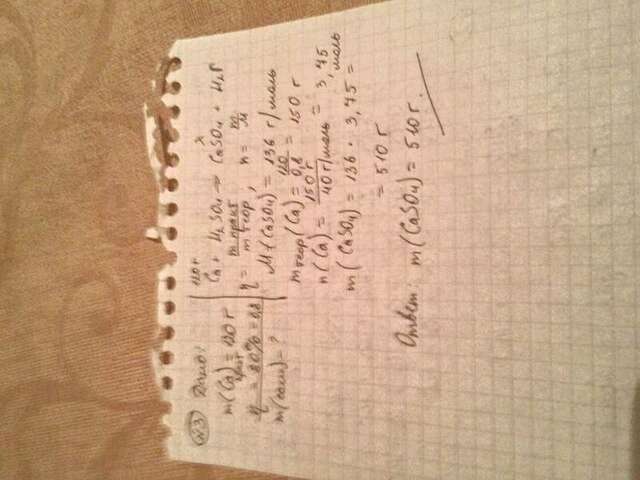 №3 Дано:
m(Ca)практ = 120 г
η = 80% = 0,8
m(соли) = ?
120 г x
Ca + H₂SO₄ → CaSO₄ + H₂↑
η = m практ / m теор, n = m / M
M(CaSO₄) = 136 г/моль
m теор(Ca) = 120 / 0,8 = 150 г
n(Ca) = 150 г / 40 г/моль = 3,75 моль
m(CaSO₄) = 136 · 3,75 =
= 510 г
Ответ: m(CaSO₄) = 510 г.